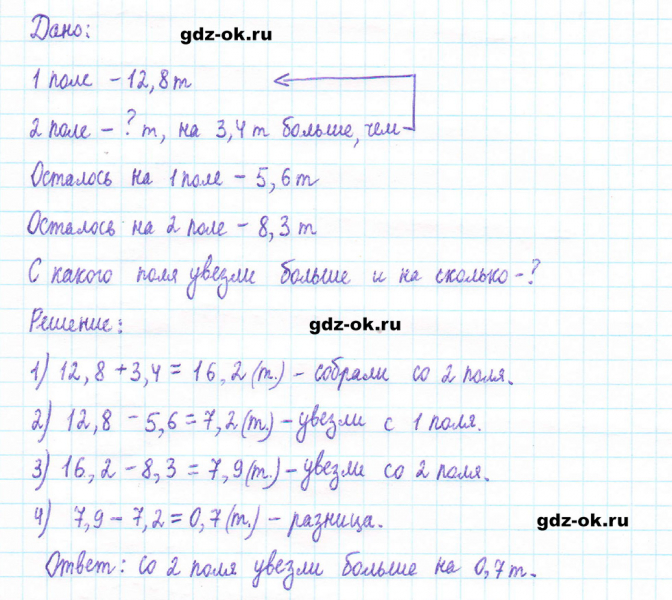 Дано:
gdz-ok.ru
1 поле – 12,8 т
2 поле – ? т, на 3,4 т больше, чем
Осталось на 1 поле – 5,6 т
Осталось на 2 поле – 8,3 т
С какого поля увезли больше и на сколько – ?
Решение:
gdz-ok.ru
1) 12,8 + 3,4 = 16,2 (т.) – собрали со 2 поля.
2) 12,8 – 5,6 = 7,2 (т.) – увезли с 1 поля.
3) 16,2 – 8,3 = 7,9 (т.) – увезли со 2 поля.
4) 7,9 – 7,2 = 0,7 (т.) – разница.
gdz-ok.ru
Ответ: со 2 поля увезли больше на 0,7 т.